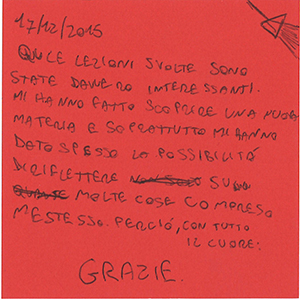 17/12/2015
QUELLE LEZIONI SVOLTE SONO
STATE DAVVERO INTERESSANTI.
MI HANNO FATTO SCOPRIRE UNA NUOVA
MATERIA E SOPRATTUTTO MI HANNO
DATO SPESSO LA POSSIBILITÁ
DI RIFLETTERE SU
MOLTE COSE COMPRESO
ME STESSO. PERCIÓ, CON TUTTO
IL CUORE:
GRAZIE.